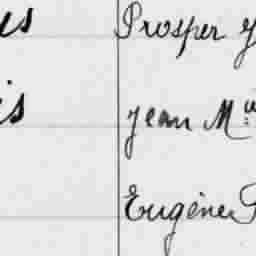 es Prosper
is Jean M
Eugène